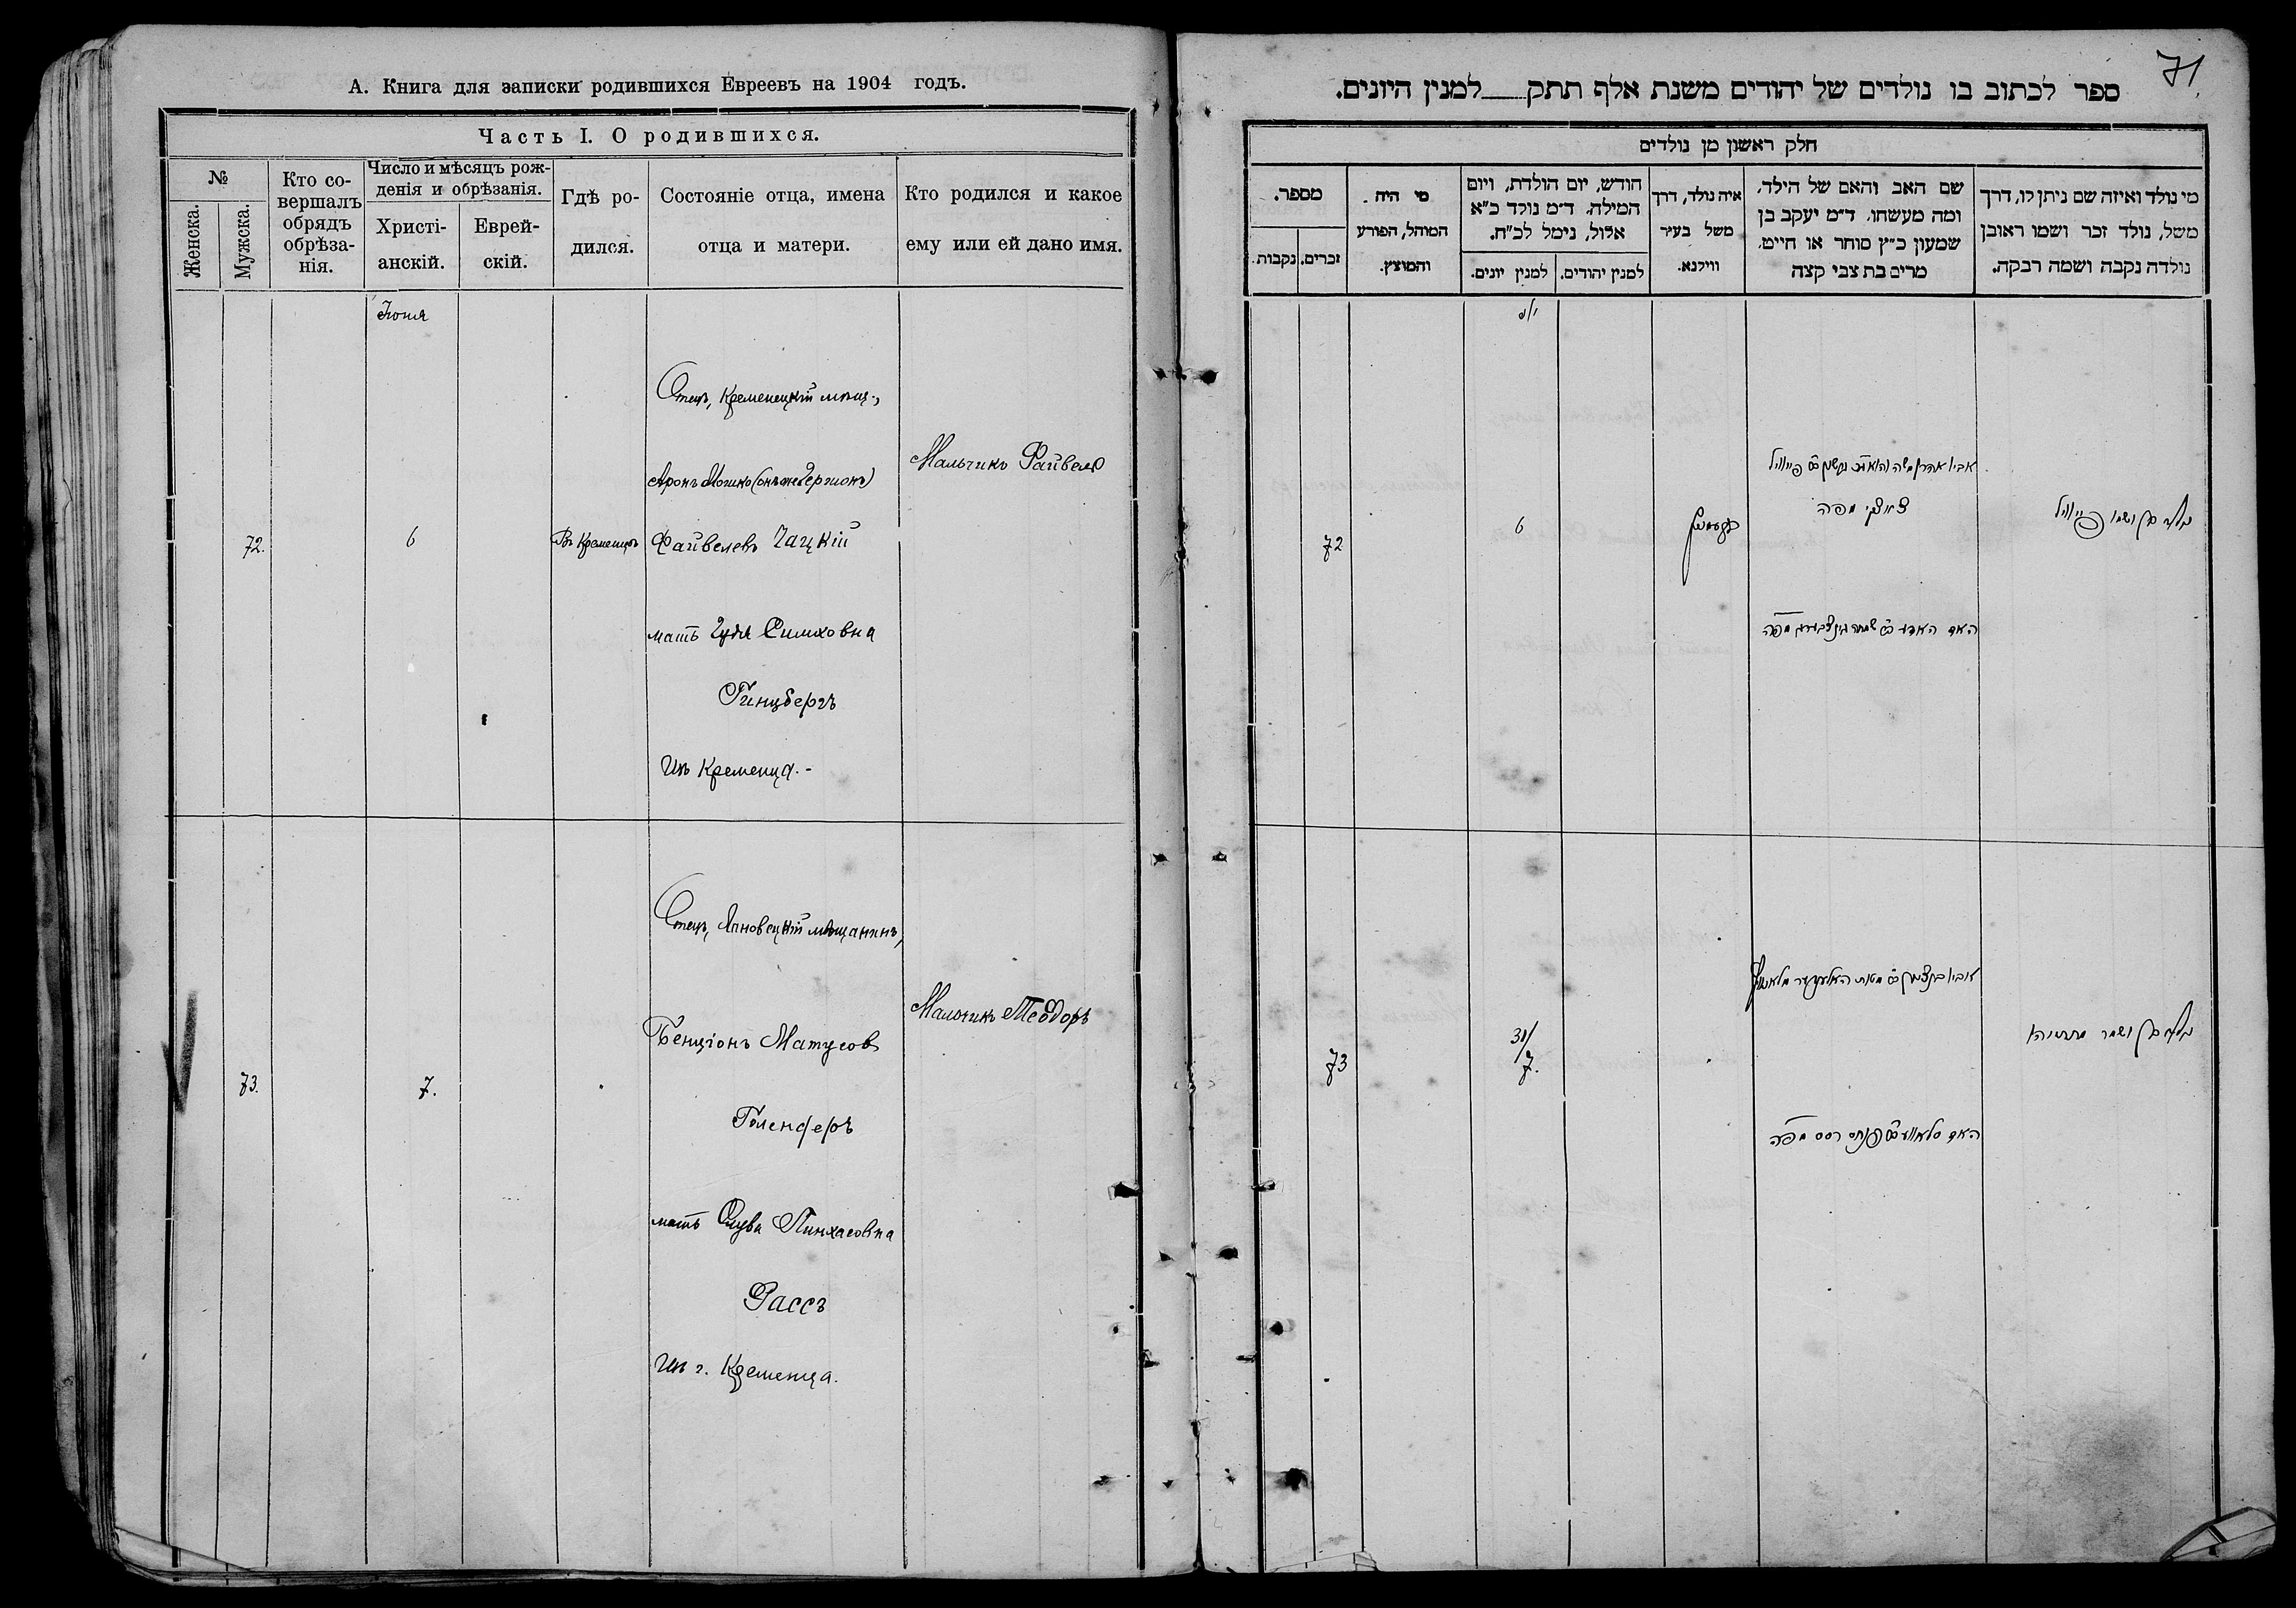 А. Книга для записки родившихся Евреевъ на 1904 годъ.
Часть I. О родившихся.
№
Женска.
Мужска.
Кто со-
вершалъ
обрядъ
обрѣза-
нія.
Число и мѣсяцъ рож-
денія и обрѣзанія.
Христі-
анскій.
Еврей-
скій.
Гдѣ ро-
дился.
Состояніе отца, имена
отца и матери.
Кто родился и какое
ему или ей дано имя.
Іюня
72.
6
Въ Кременцѣ
Отецъ, Кременецкій мѣщ.,
Аронъ Мошко (онъ же Гершонъ)
Файвелевъ Чацкій
мать Гудя Симховна
Гинцбергъ
Изъ Кременца.-
Мальчикъ Файвель
73.
7.
Отецъ, Яновецкій мѣщанинъ,
Бенціонъ Матусовъ
Голенферъ
мать Слува Пинхасовна
Рассъ
Изъ г. Кременца.
Мальчикъ Теодоръ
71
ספר לכתוב בו נולדים של יהודים משנת אלף תתק__למנין היונים.
חלק ראשון מן נולדים
מספר.
זכרים.
נקבות.
מי היה
המוהל, הפורע
והמוצץ.
חודש, יום הולדת, ויום
המילה. ד"מ נולד כ"א
אלול, נימל לכ"ח.
למנין יונים.
למנין יהודים.
איה נולד, דרך
משל בעיר
ווילנא.
שם האב והאם של הילד,
ומה מעשהו. ד"מ יעקב בן
שמעון כ"ץ סוחר או חייט.
מרים בת צבי קצה
מי נולד ואיזה שם ניתן לו, דרך
משל, נולד זכר ושמו ראובן
נולדה נקבה ושמה רבקה.
72
6
אביו אהרן משה
פייוויל
מפה
האם
שמחה גינצבורג מפה
נולד בן ושמו פייוויל
73
30/
7.
אביו בן ציון
האם
פנחס רסס מפה
נולד בן ושמו